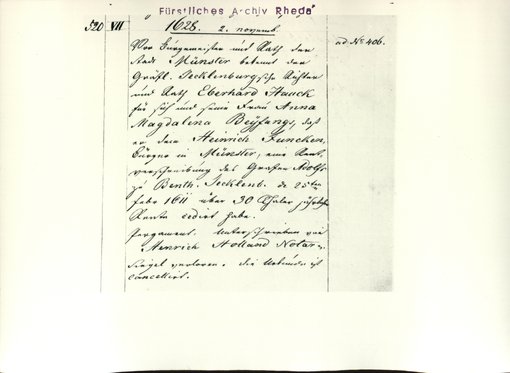 Fürstliches Archiv Rheda
520 VII 1628. 2. novemb. ad No 406.
Vor Bürgermeister und Rath der
Stadt Münster bekennt der
Gräfl. Tecklenburgsche Richter
und Rath Eberhard Hauck
für sich und seine Frau Anna
Magdalena Beyfangs, daß
er dem Heinrich Juncken,
Bürger in Münster, eine Rent-
verschreibung des Grafen Adolfs
zu Benth. Tecklenb. de 25ten
Febr 1611 über 30 Thaler jährliche
Rente cedirt habe.
Pergament. Unterschrieben von
Henrich Holland Notar
Siegel verloren. Die Urkunde ist
cancellirt.